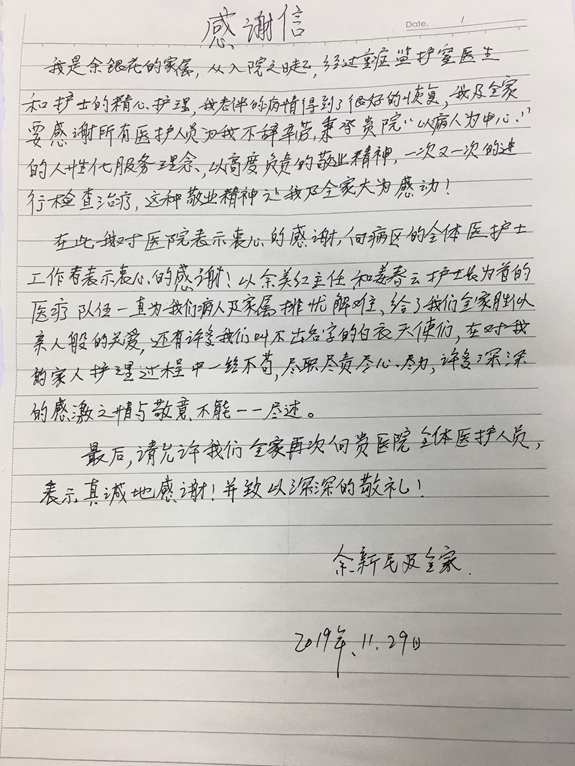 感谢信
Date. 1
我是余银花的家属，从入院之日起，经过重症监护室医生
和护士的精心护理，我老伴的病情得到了很好的恢复，我及全家
要感谢所有医护人员为我不辞辛劳，秉承贵院“以病人为中心”
的人性化服务理念、以高度负责的敬业精神，一次又一次的进
行检查治疗，这种敬业精神让我及全家大为感动！
在此，我对医院表示衷心的感谢，向病区的全体医护士
工作者表示衷心的感谢！以余美红主任和姜春云护士长为首的
医疗队伍一直为我们病人及家属排忧解难、给了我们全家胜似
亲人般的关爱，还有许多我们叫不出名字的白衣天使们，在对我
的家人护理过程中一丝不苟，尽职尽责尽心尽力，许多深深
的感激之情与敬意不能一一尽述。
最后，请允许我们全家再次向贵医院全体医护人员，
表示真诚地感谢！并致以深深的敬礼！
余新民及全家
2019年.11.29日